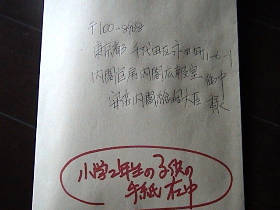 〒100-8968
東京都千代田区永田町1-6-1
内閣官房 内閣広報室 気付
安倍内閣総理大臣
小学2年生の子供の
手紙 在中